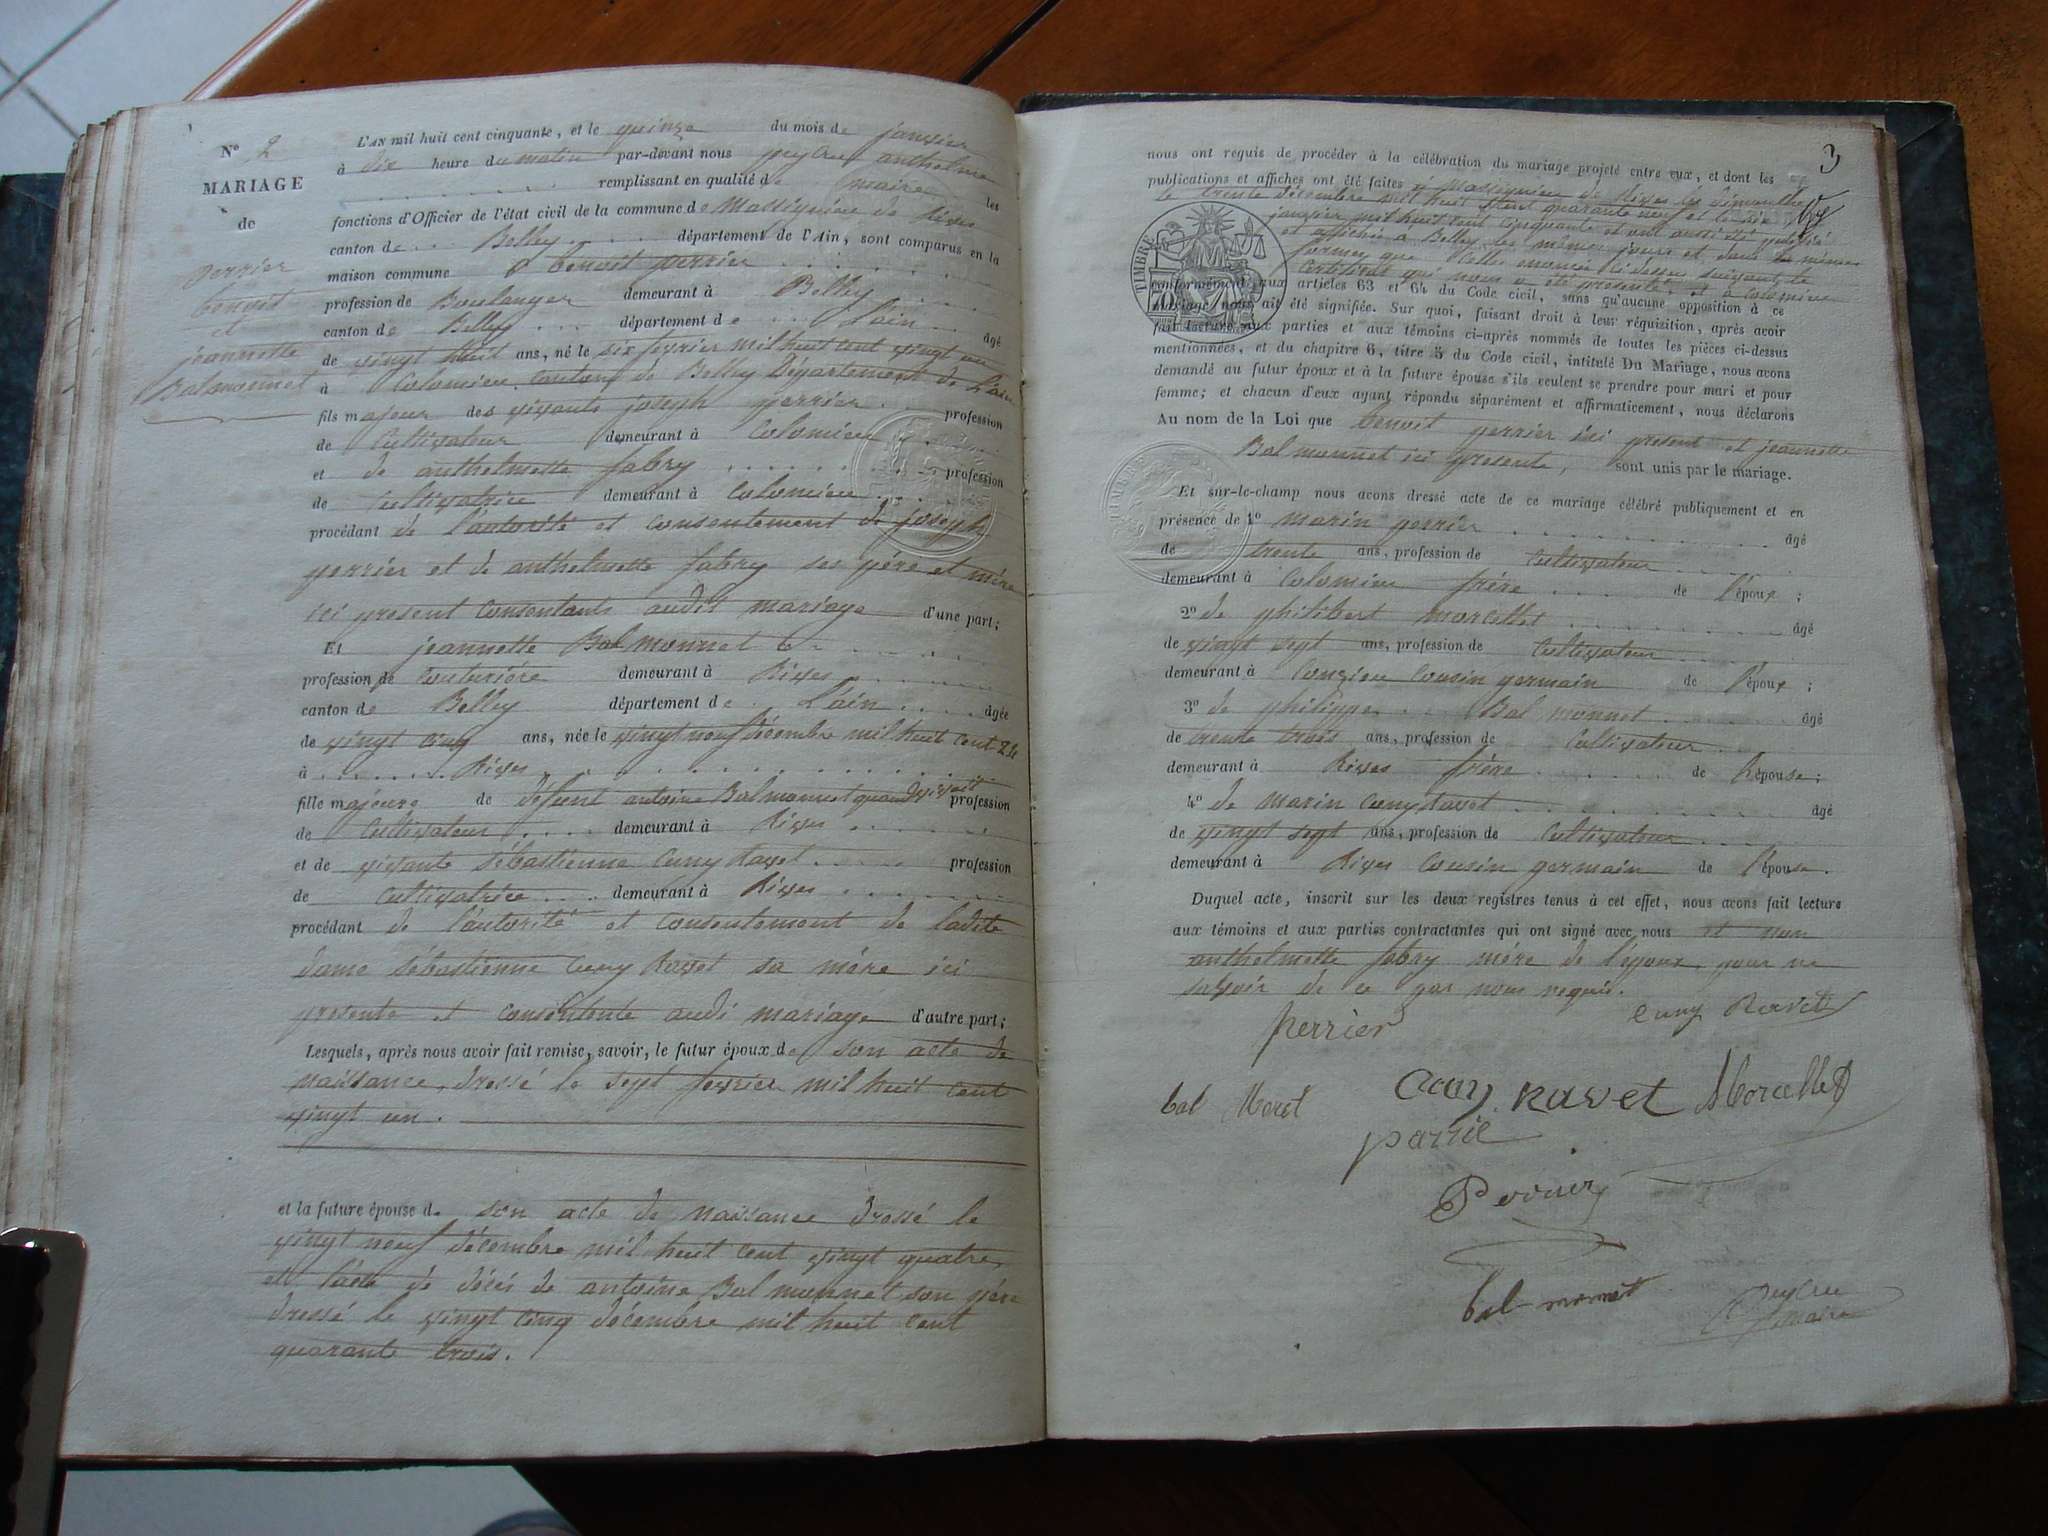 N° 2
MARIAGE
de
perrier
benoit
et
jeannette
Balmonnet
L'AN mil huit cent cinquante, et le quinze du mois de janvier
à dix heure du matin par-devant nous peyCru anthelme
remplissant en qualité de maire les
fonctions d'Officier de l'état civil de la commune de Massignieu de Rives
canton de Belley département de l'Ain, sont comparus en la
maison commune benoit perrier
profession de Boulanger demeurant à Belley
canton de Belley département de L'ain âgé
de vingt huit ans, né le six fevrier mil huit cent vingt un
à Colomieu Canton de Belley Département de L'ain
fils majeur des vivants joseph perrier profession
de Cultivateur demeurant à Colomieu
et de anthelmette fabry profession
de Cultivatrice demeurant à Colomieu
procédant de l'autorité et consentement de joseph
perrier et de anthelmette fabry ses père et mère
ici present consentants audit mariage d'une part;
Et jeannette Bal monnet
profession de Couturière demeurant à Rives
canton de Belley département de L'ain âgée
de vingt cinq ans, née le vingt neuf décembre mil huit cent 24
à Rives
fille majeure de defunt antoine Balmonnet quand vivait profession
de Cultivateur demeurant à Rives
et de vivante Sébastienne Cuny Ravet profession
de Cultivatrice demeurant à Rives
procédant de l'autorité et consentement de ladite
dame Sébastienne Cuny Ravet sa mére ici
presente et consentente audi mariage d'autre part;
Lesquels, après nous avoir fait remise, savoir, le futur époux de son acte de
naissance dressé le sept fevrier mil huit cent
vingt un.
et la future épouse de son acte de naissance dressé le
vingt neuf décembre mil huit cent vingt quatre
et l'acte de décés de antoine Bal monnet son pére
dressé le vingt cinq décembre mil huit cent
quarante trois.
3
nous ont requis de procéder à la célébration du mariage projeté entre eux, et dont les
publications et affiches ont été faites à Massignieu de Rives les dimanche
le trente décembre mil huit cent quarante neuf et le six
janvier mil huit cent cinquante et ont aussi été publié
et affichés à Belley les mêmes jours et dans la même
forme que celle énoncée ci dessus suivant le
certificat qui nous a été presenté et à Colomieu
TIMBRE
conformément aux articles 63 et 64 du Code civil, sans qu'aucune opposition à ce
mariage nous ait été signifiée. Sur quoi, faisant droit à leur réquizition, après avoir
fait lecture aux parties et aux témoins ci-après nommés de toutes les pièces ci-dessus
mentionnées, et du chapitre 6, titre 5 du Code civil, intitulé Du Mariage, nous avons
demandé au futur époux et à la future épouse s'ils veulent se prendre pour mari et pour
femme; et chacun d'eux ayant répondu séparément et affirmaticement, nous déclarons
Au nom de la Loi que benoit perrier ici present et jeannette
Bal monnet ici presente, sont unis par le mariage.
Et sur-le-champ nous avons dressé acte de ce mariage célébré publiquement et en
présence de 1° marin perrier âgé
de trente ans, profession de Cultivateur
demeurant à Colomieu frére de l'époux;
2° de philibert morcellet âgé
de vingt sept ans, profession de Cultivateur
demeurant à Conzieu Cousin germain de l'époux;
3° de philippe Bal monnet âgé
de trente trois ans, profession de Cultivateur
demeurant à Rives frére de l'épouse;
4° de marin Cuny Ravet âgé
de vingt sept ans, profession de Cultivateur
demeurant à Rives Cousin germain de l'épouse.
Duquel acte, inscrit sur les deux registres tenus à cet effet, nous avons fait lecture
aux témoins et aux parties contractantes qui ont signé avec nous et non
anthelmette fabry mére de l'époux, pour ne
savoir de ce par nous requis.
perrier Cuny Ravet
bal Monet Cuny Ravet Morcellet
parrie
Perrier
bal monnet
peyCru
maire